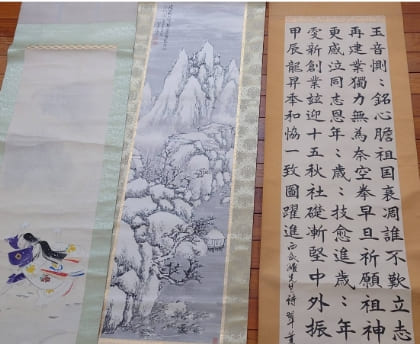 玉音惻〻銘心膽祖国衰凋誰不歎立志
再建業獨力無為奈空拳早旦祈願祖神
更感泣同志恩年〻歳〻技愈進歳〻年
新創業玆迎十五秋社礎漸堅中外振
甲辰龍昇季和恊一致圖躍進